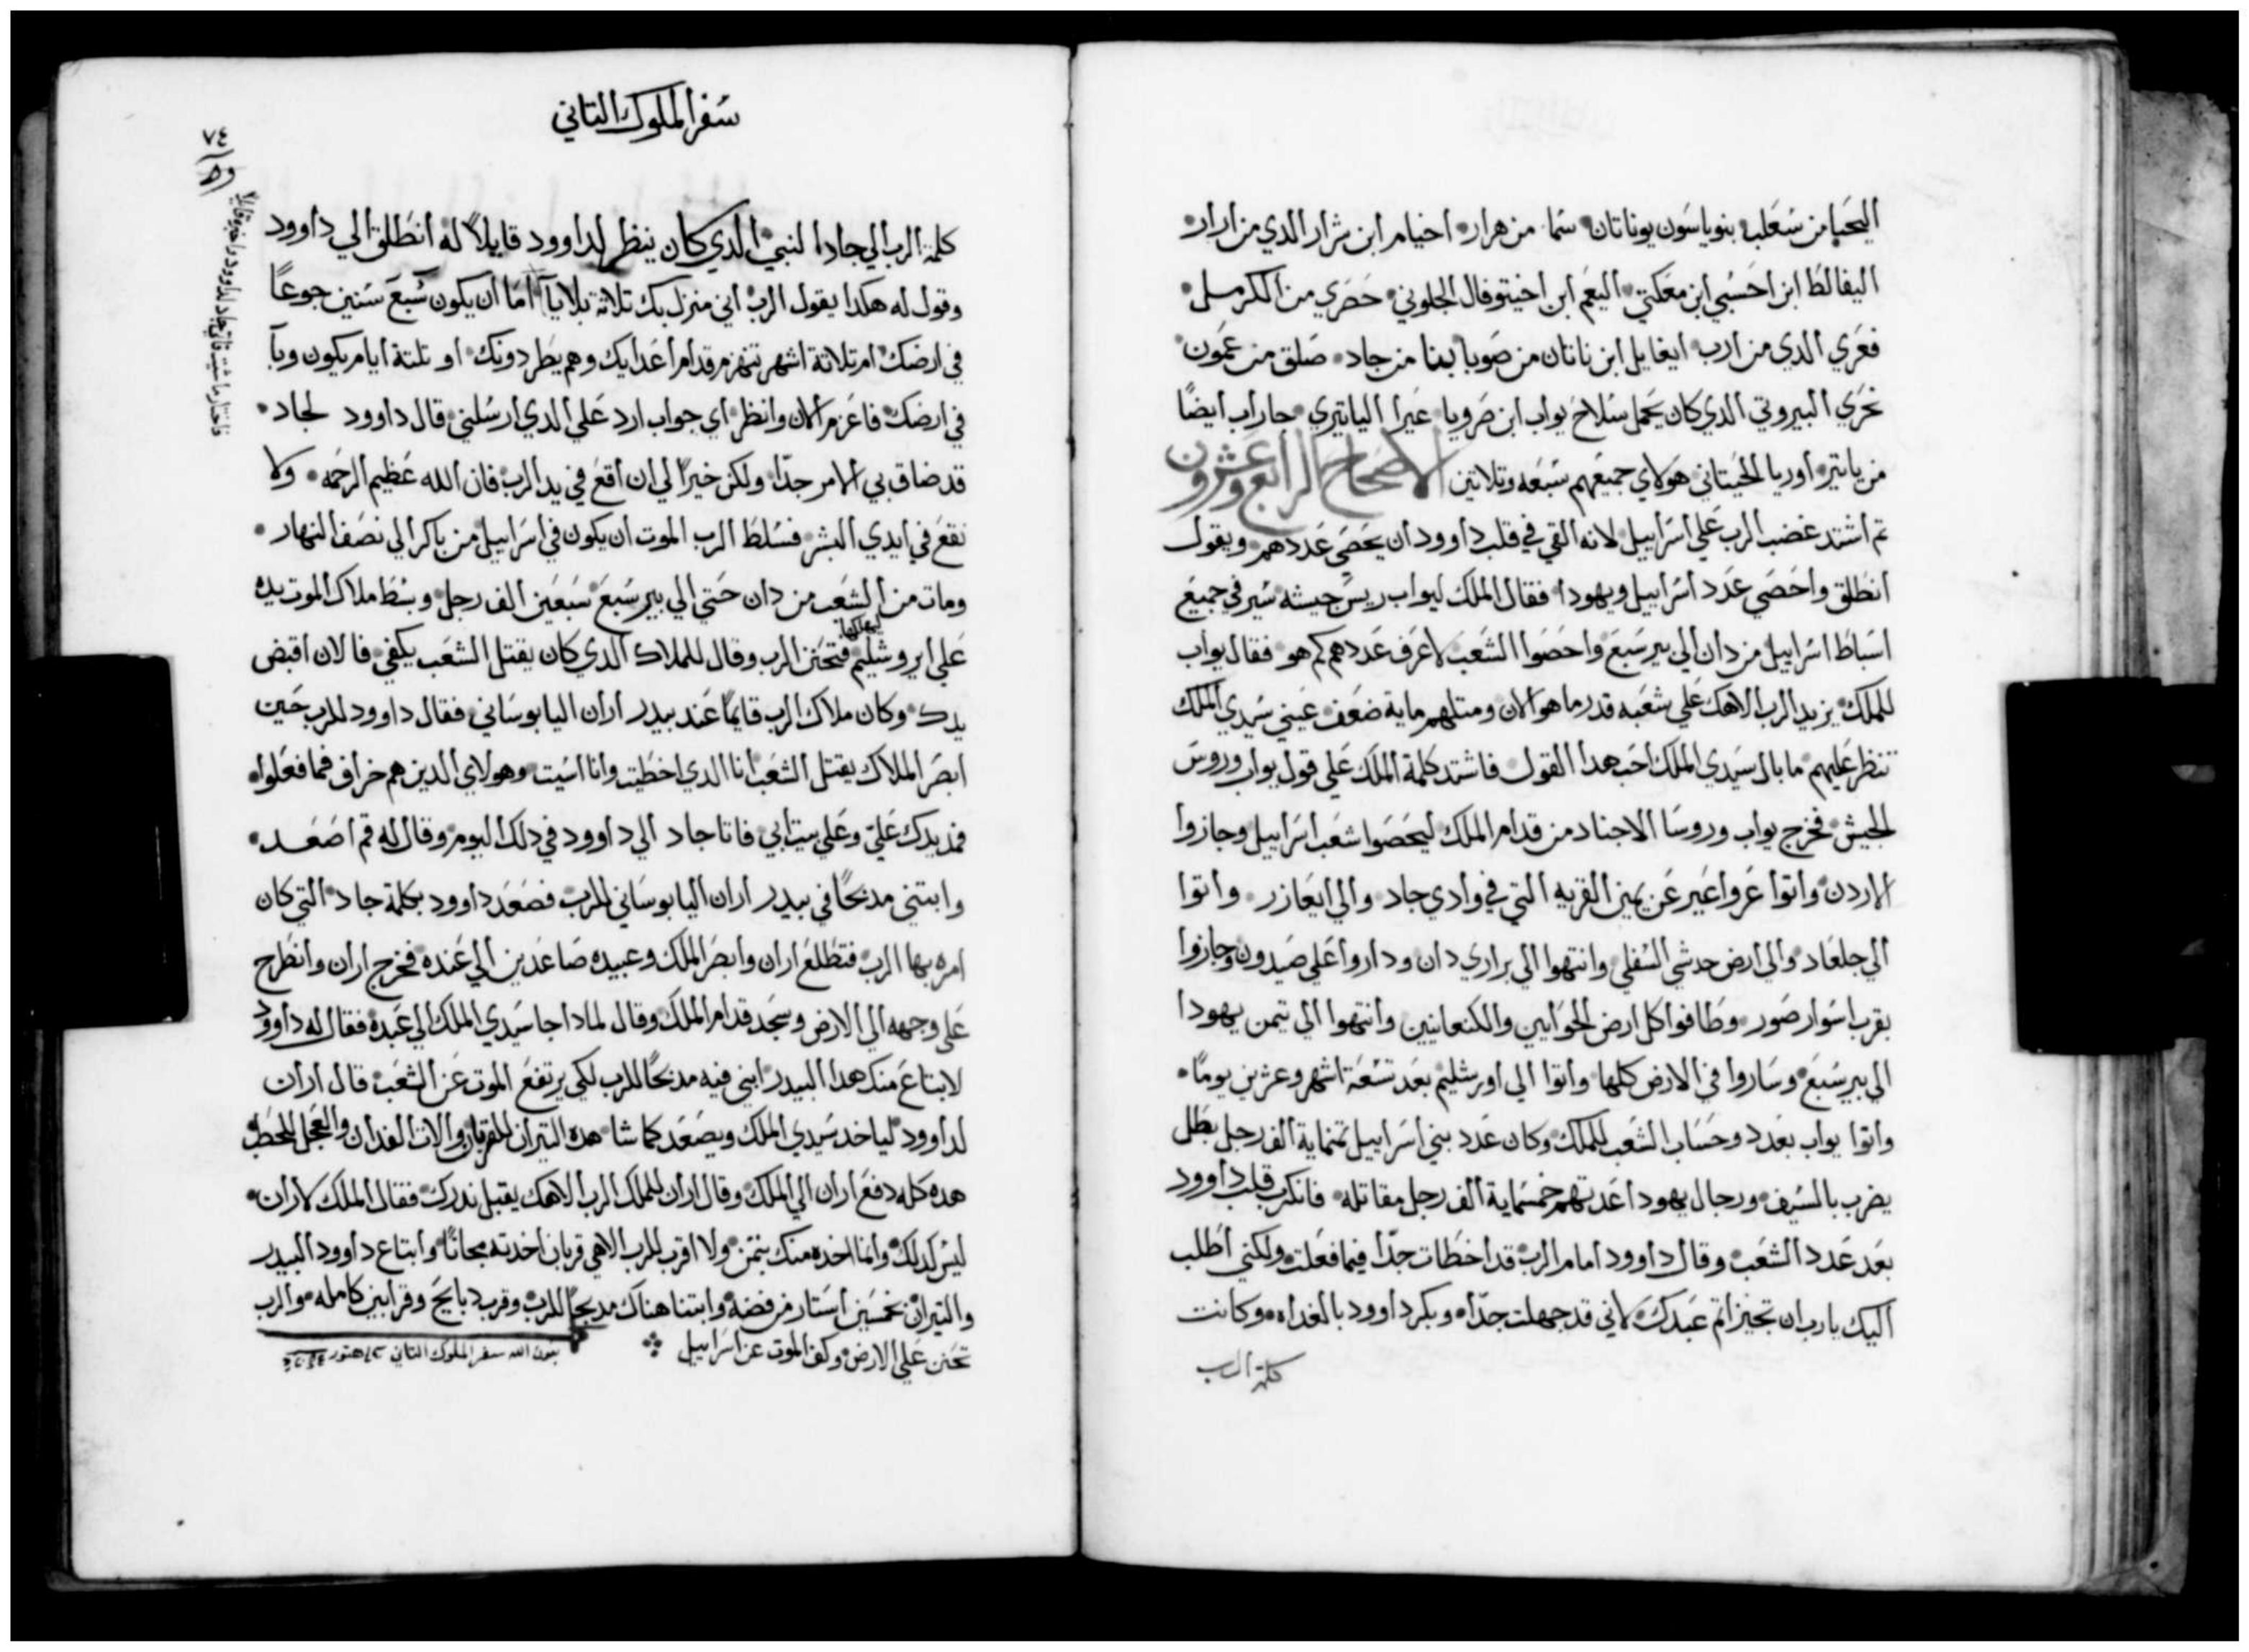 اليحبا من سعلب بنو ياسون يوناتان سما من هرار اخيام ابن شرار الدي من ارار
اليفالط ابن احسبي ابن معكتي اليعم ابن اخيتوفال الجلوني حصري من الكرملي
فعري الدي من ارب ايغايل ابن ناتان من صوبا بنا من جاد صلق من عمون
نحري البيروتي الدي كان يحمل سلاح يواب ابن صرويا عيرا الياتيري جاراب ايضًا
من ياتير اوريا الحيتاني هولاي جميعهم سبعه وتلاتين الاصحاح الرابع وعشرون
تم اشتد غضب الرب علي اسراييل لانه القي في قلب داوود ان يحصي عددهم ويقول
انطلق واحصي عدد اسراييل ويهودا فقال الملك ليواب ريس جيشه سير في جميع
اسباط اسراييل من دان الي بير سبع واحصوا الشعب لاعرف عددهم كم هو فقال يواب
للملك يزيد الرب الاهك علي شعبه قدر ما هو الان ومتلهم ماية ضعف عيني سيدي الملك
تنظر عليهم ما بال سيدي الملك احب هدا القول فاشتد كلمة الملك علي قول يواب وروس
الجيش فخرج يواب وروسا الاجناد من قدام الملك ليحصوا شعب اسراييل وجازوا
الاردن واتوا عروا عير عن يمين القريه التي في وادي جاد والي ايعازر واتوا
الي جلعاد والي ارض حدشي السفلي وانتهوا الي براري دان وداروا علي صيدون وجازوا
بقرب اسوار صور وطافوا كل ارض الحوايين والكنعانيين وانتهوا الي تيمن يهودا
الي بير سبع وساروا في الارض كلها واتوا الي اورشليم بعد تسعة اشهر وعشرين يومًا
واتوا يواب بعدد وحساب الشعب للملك وكان عدد بني اسراييل تمنماية الف رجل بطل
يضرب بالسيف ورجال يهودا عدتهم خمسماية الف رجل مقاتله فانكرب قلب داوود
بعد عدد الشعب وقال داوود امام الرب قد اخطات جدًا فيما فعلت ولكني اطلب
اليك يا رب ان تجيز اتم عبدك لاني قد جهلت جدًا وبكر داوود بالغداه وكانت
كلمة الرب
سفر الملوك التاني
٧٤
كلمة الرب الي جاد النبي الدي كان ينظر لداوود قايلاً له انطلق الي داوود
وقول له هكدا يقول الرب اني منزل بك تلاتة بلايا اما ان يكون سبع سنين جوعًا
في ارضك ام تلاتة اشهر تنهزم قدام اعدايك وهم يطردونك او تلتة ايام يكون وبآ
في ارضك فاعزم الان وانظر اي جواب ارد علي الدي ارسلني قال داوود لجاد
قد ضاق بي الامر جدًا ولكن خيرًا لي ان اقع في يد الرب فان الله عظيم الرحمه ولا
نقع في ايدي البشر فسلط الرب الموت ان يكون في اسراييل من باكر الي نصف النهار
ومات من الشعب من دان حتي الي بير سبع سبعين الف رجل وبسط ملاك الموت يده
علي ايروشليم ليهلكها فتحنن الرب وقال للملاك الدي كان يقتل الشعب يكفي فالان اقبض
يدك وكان ملاك الرب قايمًا عند بيدر اران اليابوساني فقال داوود للرب حين
ابصر الملاك يقتل الشعب انا الدي اخطيت وانا اسيت وهولاي الدين هم خراف فما فعلوا
فمد يدك علي وعلي بيت ابي فاتا جاد الي داوود في دلك اليوم وقال له قم اصعد
وابتني مدبحًا في بيدر اران اليابوساني للرب فصعد داوود بكلمة جاد التي كان
امره بها الرب فتطلع اران وابصر الملك وعبيده صاعدين الي عنده فخرج اران وانطرح
علي وجهه الي الارض وسجد قدام الملك وقال لمادا جا سيدي الملك الي عبده فقال له داوود
لابتاع منك هدا البيدر ابني فيه مدبحًا للرب لكي يرتفع الموت عن الشعب قال اران
لداوود لياخد سيدي الملك ويصعد كما شا هده التيران للقربان والات الفدان والعجل للحطب
هده كله دفع اران الي الملك وقال اران للملك الرب الاهك يقبل ندرك فقال الملك لاران
ليس كدلك وانما اخده منك بتمن ولا اقرب للرب الاهي قربان اخدته مجانًا وابتاع داوود البيدر
والتيران بخمسين استار من فضه وابتنا هناك مدبحًا للرب وقرب دبايح وقرابين كامله والرب
تحنن علي الارض وكف الموت عن اسراييل
بعون الله سفر الملوك التاني هتور
فاتي جاد لداوود واخبره قايلاً
فاختار ما شيت